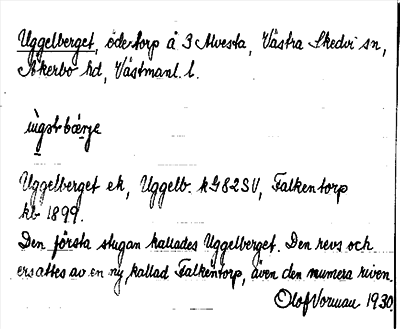 Uggelberget, ödetorp å 3 Alvesta, Västra Skedvi sn,
Åkerbo hd, Västmanl. l.
Uggelberget ek, Uggelb. kG82SV, Falkentorp
kb 1899.
Den första stugan kallades Uggelberget. Den revs och
ersattes av en ny, kallad Falkentorp, även den numera riven.
Olof Vorman 1930.